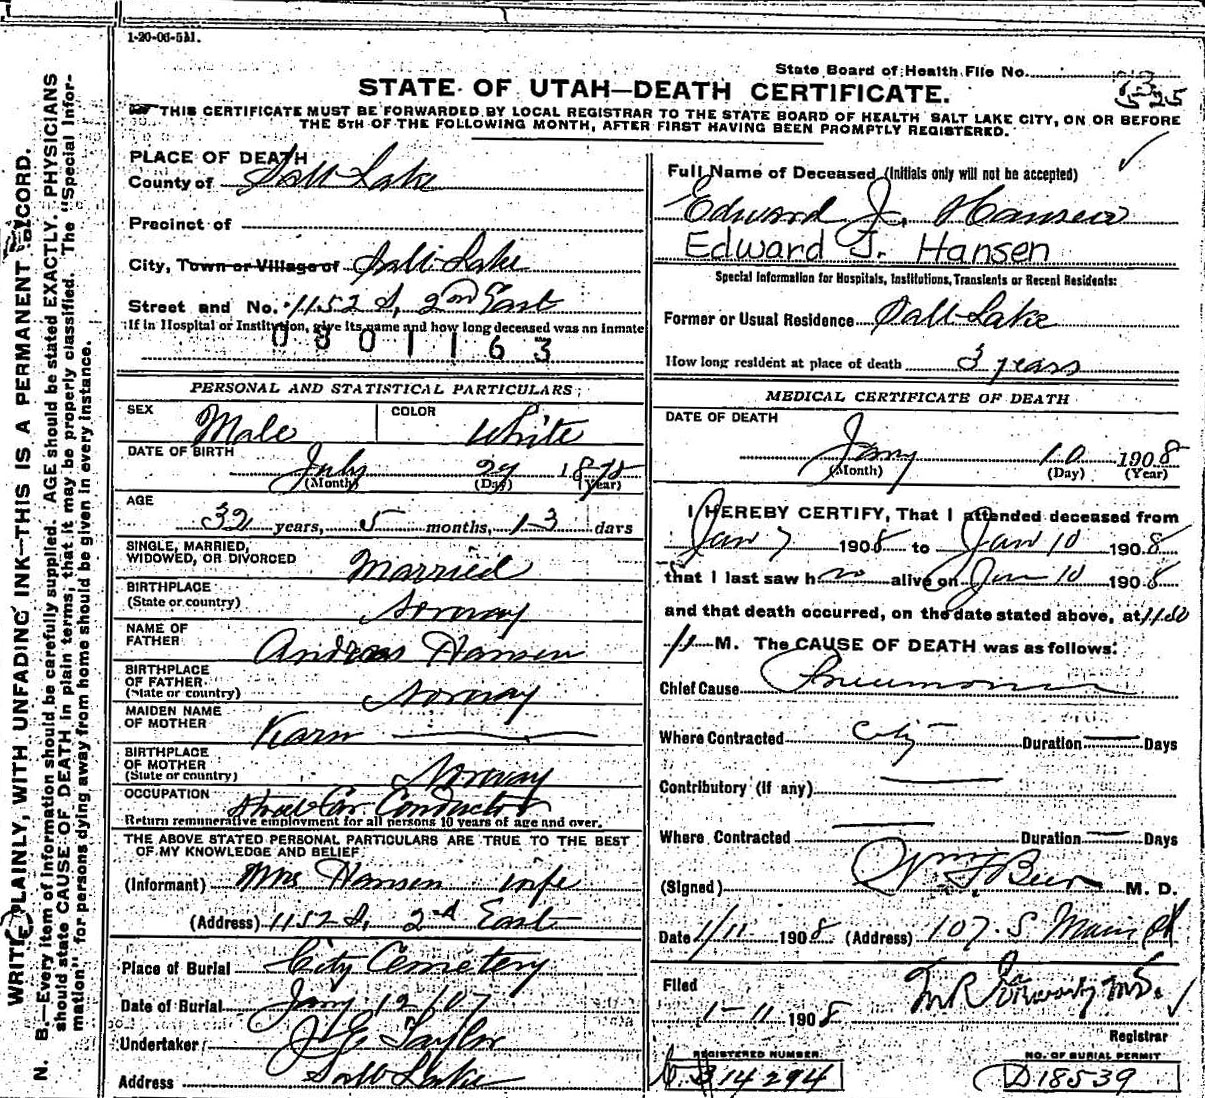 1-20-06-5M.
State Board of Health File No.
525
STATE OF UTAH—DEATH CERTIFICATE.
THIS CERTIFICATE MUST BE FORWARDED BY LOCAL REGISTRAR TO THE STATE BOARD OF HEALTH SALT LAKE CITY, ON OR BEFORE
THE 5TH OF THE FOLLOWING MONTH, AFTER FIRST HAVING BEEN PROMPTLY REGISTERED.
WRITE PLAINLY, WITH UNFADING INK—THIS IS A PERMANENT RECORD.
N. B.—Every item of information should be carefully supplied. AGE should be stated EXACTLY. PHYSICIANS
should state CAUSE OF DEATH in plain terms, that it may be properly classified. The "Special Infor-
mation" for persons dying away from home should be given in every instance.
PLACE OF DEATH
County of Salt Lake
Precinct of
City, Town or Village of Salt Lake
Street and No. 1152 S, 2nd East
If in Hospital or Institution, give its name and how long deceased was an inmate
0801163
PERSONAL AND STATISTICAL PARTICULARS
SEX Male COLOR White
DATE OF BIRTH
July 29 18
(Month) (Day) (Year)
AGE
32 years, 5 months, 13 days
SINGLE, MARRIED,
WIDOWED, OR DIVORCED Married
BIRTHPLACE
(State or country) Norway
NAME OF
FATHER Andreas Hansen
BIRTHPLACE
OF FATHER
(State or country) Norway
MAIDEN NAME
OF MOTHER Karn
BIRTHPLACE
OF MOTHER
(State or country) Norway
OCCUPATION Street Car Conductor
Return remunerative employment for all persons 10 years of age and over.
THE ABOVE STATED PERSONAL PARTICULARS ARE TRUE TO THE BEST
OF MY KNOWLEDGE AND BELIEF
(Informant) Mrs Hansen wife
(Address) 1152 S, 2nd East
Place of Burial City Cemetery
Date of Burial Jany 12/07
Undertaker Taylor
Address Salt Lake
Full Name of Deceased (Initials only will not be accepted)
Edward J. Hansen
Edward J. Hansen
Special Information for Hospitals, Institutions, Transients or Recent Residents:
Former or Usual Residence Salt Lake
How long resident at place of death 3 years
MEDICAL CERTIFICATE OF DEATH
DATE OF DEATH
Jany 10 1908
(Month) (Day) (Year)
I HEREBY CERTIFY, That I attended deceased from
Jan 7 1908 to Jan 10 1908
that I last saw h alive on Jan 10 1908
and that death occurred, on the date stated above, at
M. The CAUSE OF DEATH was as follows:
Chief Cause Pneumonia
Where Contracted City Duration Days
Contributory (if any)
Where Contracted Duration Days
(Signed) M. D.
Date 1/11 1908 (Address) 107 S Main St
Filed
1-11 1908
Registrar
REGISTERED NUMBER
14294
NO. OF BURIAL PERMIT
D18539